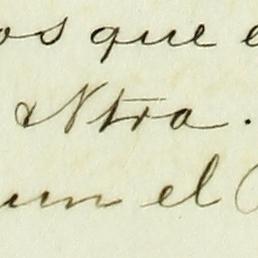 os que e
á Ntra.
un el